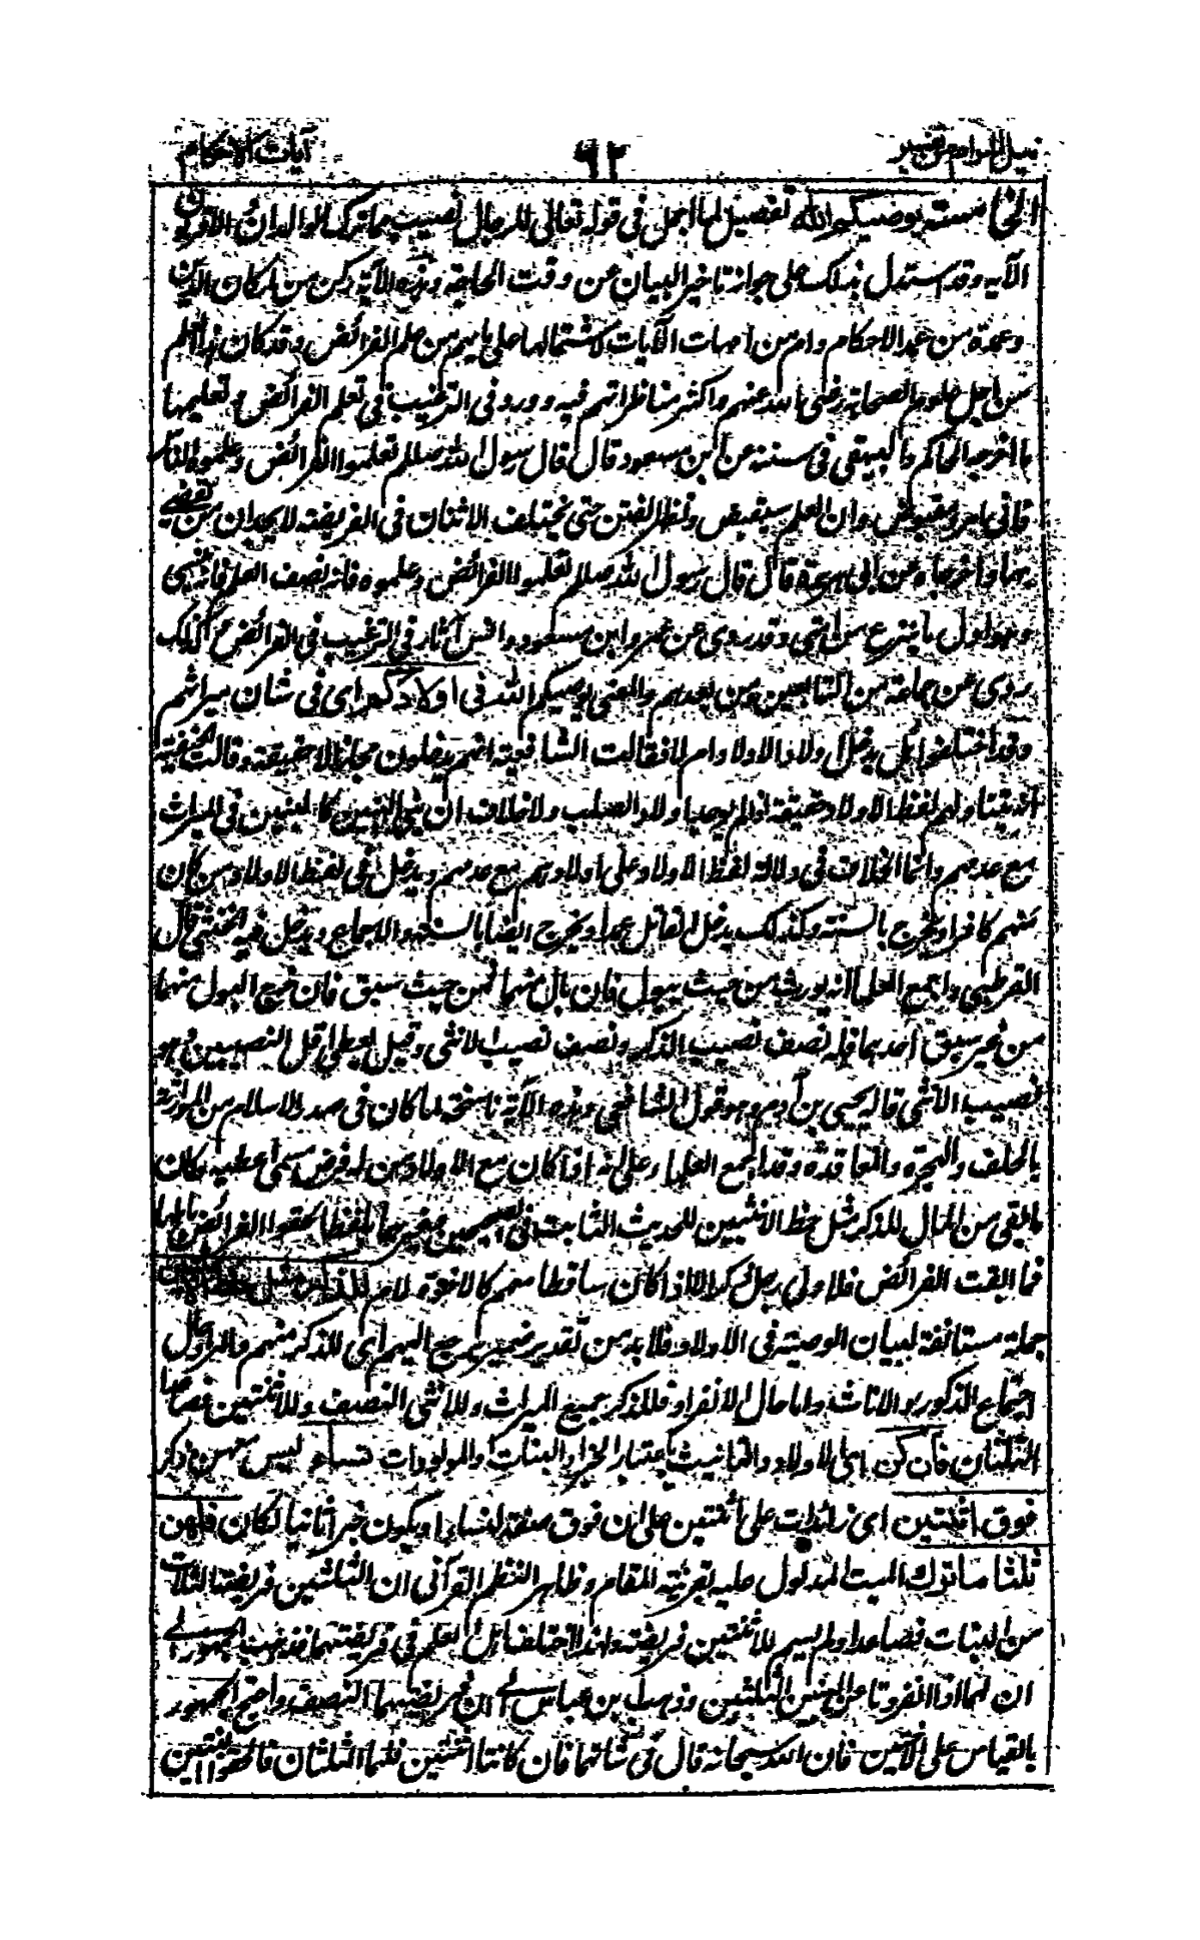 نيل المرام من تفسير ٩٢ آيات الاحكام
الخامسة يوصيكم الله تفصيل لما اجمل في قوله تعالى للرجال نصيب مما ترك الوالدان والاقربون
الآية وقد استدل بذلك على جواز تاخير البيان عن وقت الحاجة وهذه الآية ركن من اركان الدين
وعمدة من عمد الاحكام وام من امهات الآيات لاشتمالها على ما يهم من علم الفرائض وقد كان هذا العلم
من اجل علوم الصحابة رضي الله عنهم واكثر مناظراتهم فيه وورد في الترغيب في تعلم الفرائض وتعليمها
ما اخرجه الحاكم والبيهقي في سننه عن ابن مسعود قال قال رسول الله صللم تعلموا الفرائض وعلموه الناس
فاني امرء مقبوض وان العلم سيقبض وتظهر الفتن حتى يختلف الاثنان في الفريضة لا يجدان من يقضي
بها واخرجاه عن ابي هريرة قال قال رسول الله صللم تعلموا الفرائض وعلموه فانه نصف العلم فانه ينسى
وهو اول ما ينزع من امتي وقد روي عن عمر وابن مسعود وانس آثار في الترغيب في الفرائض وكذلك
روي عن جماعة من التابعين ومن بعدهم والمعنى يوصيكم الله في اولادكم اي في شان ميراثهم
وقد اختلفوا هل يدخل اولاد الاولاد ام لا فقالت الشافعية انهم يدخلون مجازا لا حقيقة وقالت الحنفية
انه يتناولهم لفظ الاولاد حقيقة اذا لم يوجد اولاد الصلب ولا خلاف ان بني البنين كالبنين في الميراث
مع عدمهم وانما الخلاف في دلالة لفظ الاولاد على اولادهم مع عدمهم ويدخل في لفظ الاولاد من كان
منهم كافرا ويخرج بالسنة وكذلك يدخل القاتل عمدا ويخرج ايضا بالسنة والاجماع ويدخل فيه الخنثى قال
القرطبي واجمع العلماء انه يورث من حيث يبول فان بال منهما فمن حيث سبق فان خرج البول منهما
من غير سبق احدهما فله نصف نصيب الذكر ونصف نصيب الانثى وقيل يعطى اقل النصيبين وهو
نصيب الانثى قاله يحيى بن آدم وهو قول الشافعي وهذه الآية ناسخة لما كان في صدر الاسلام من الموارثة
بالحلف والهجرة والمعاقدة وقد اجمع العلماء على انه اذا كان مع الاولاد من له فرض مسمى اعطيه وكان
ما بقي من المال للذكر مثل حظ الانثيين للحديث الثابت في الصحيحين وغيرهما بلفظ الحقوا الفرائض باهلها
فما ابقت الفرائض فلاولى رجل ذكر الا اذا كان ساقطا معهم كالاخوة لام للذكر مثل حظ الانثيين
جملة مستانفة لبيان الوصية في الاولاد فلا بد من تقدير ضمير يرجع اليهم اي للذكر منهم والمراد حال
اجتماع الذكور والاناث واما حال الانفراد فللذكر جميع الميراث وللانثى النصف وللاثنتين فصاعدا
الثلثان فان كن اي الاولاد والتانيث باعتبار الخبر او البنات او المولودات نساء ليس معهن ذكر
فوق اثنتين اي زائدات على اثنتين على ان فوق صفة لنساء او يكون خبرا ثانيا لكان فلهن
ثلثا ما ترك الميت المدلول عليه بقرينة المقام وظاهر النظم القرآني ان الثلثين فريضة الثلاث
من البنات فصاعدا ولم يسم للاثنتين فريضة ولهذا اختلف اهل العلم في فريضتهما فذهب الجمهور الى
ان لهما اذا انفردتا عن البنين الثلثين وذهب ابن عباس الى ان فريضتهما النصف واحتج الجمهور
بالقياس على الاختين فان الله سبحانه قال في شانهما فان كانتا اثنتين فلهما الثلثان فالحقوا البنتين